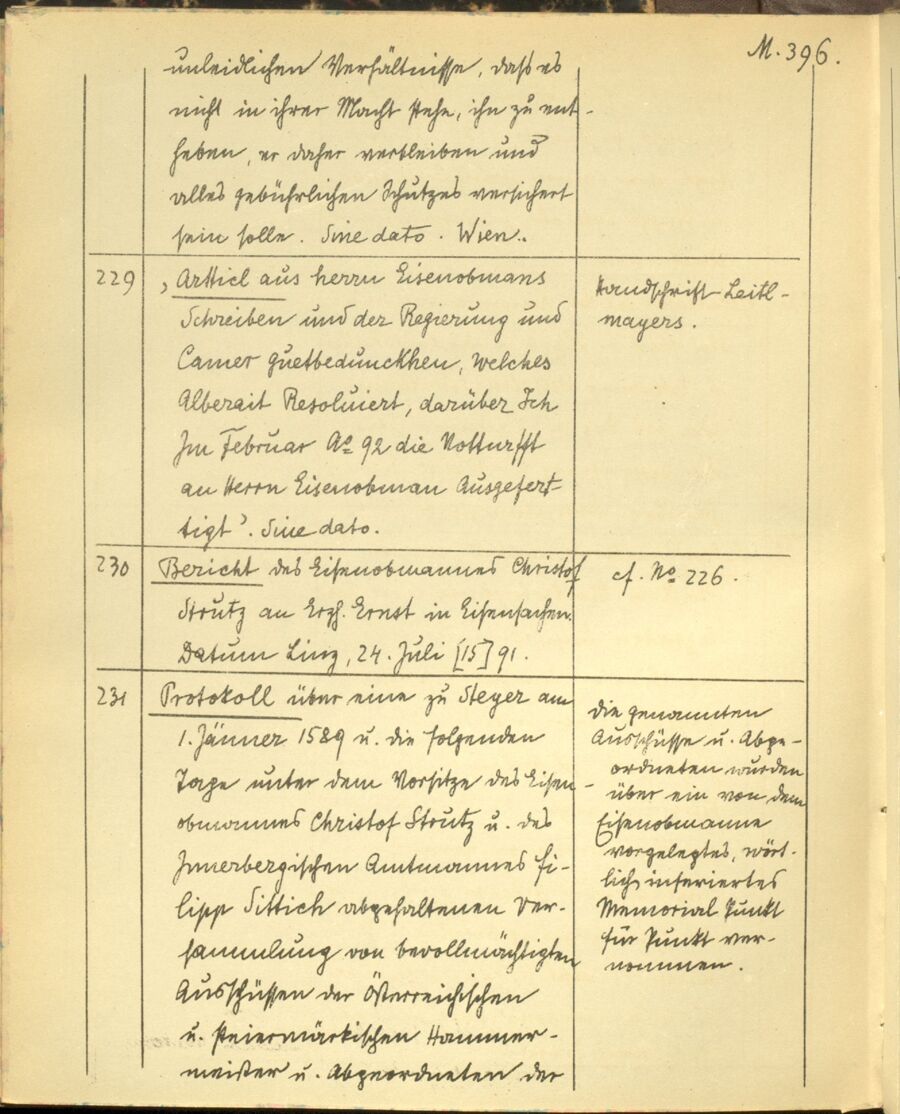 M. 396.
unleidlichen Verhältnisse, dass es
nicht in ihrer Macht stehe, ihn zu ent-
heben, er daher verbleiben und
alles gebührlichen Schutzes versichert
sein solle. Sine dato. Wien.
229
„Articl aus herrn Eisenobmans
Schreiben und der Regierung und
Camer guetbedunckhen, welches
Alberait Resoluiert, darüber Ich
Im Februar Aº 92 die Notturfft
an Herrn Eisenobman Ausgefert-
tigt'. Sine dato.
Handschrift Leitl-
mayers.
230
Bericht des Eisenobmannes Christof
Strutz an Erzh. Ernst in Eisensachen.
Datum Linz, 24. Juli [15]91.
cf. Nº 226.
231
Protokoll über eine zu Steyer am
1. Jänner 1589 u. die folgenden
Tage unter dem Vorsitze des Eisen-
obmannes Christof Strutz u. des
Innerbergischen Amtmannes Fi-
lipp Sittich abgehaltenen Ver-
sammlung von bevollmächtigten
Ausschüssen der Österreichischen
u. steiermärkischen Hammer-
meister u. Abgeordneten der
Die genannten
Ausschüsse u. Abge-
ordneten wurden
über ein von dem
Eisenobmanne
vorgelegtes, wört-
lich inseriertes
Memorial Punkt
für Punkt ver-
nommen.